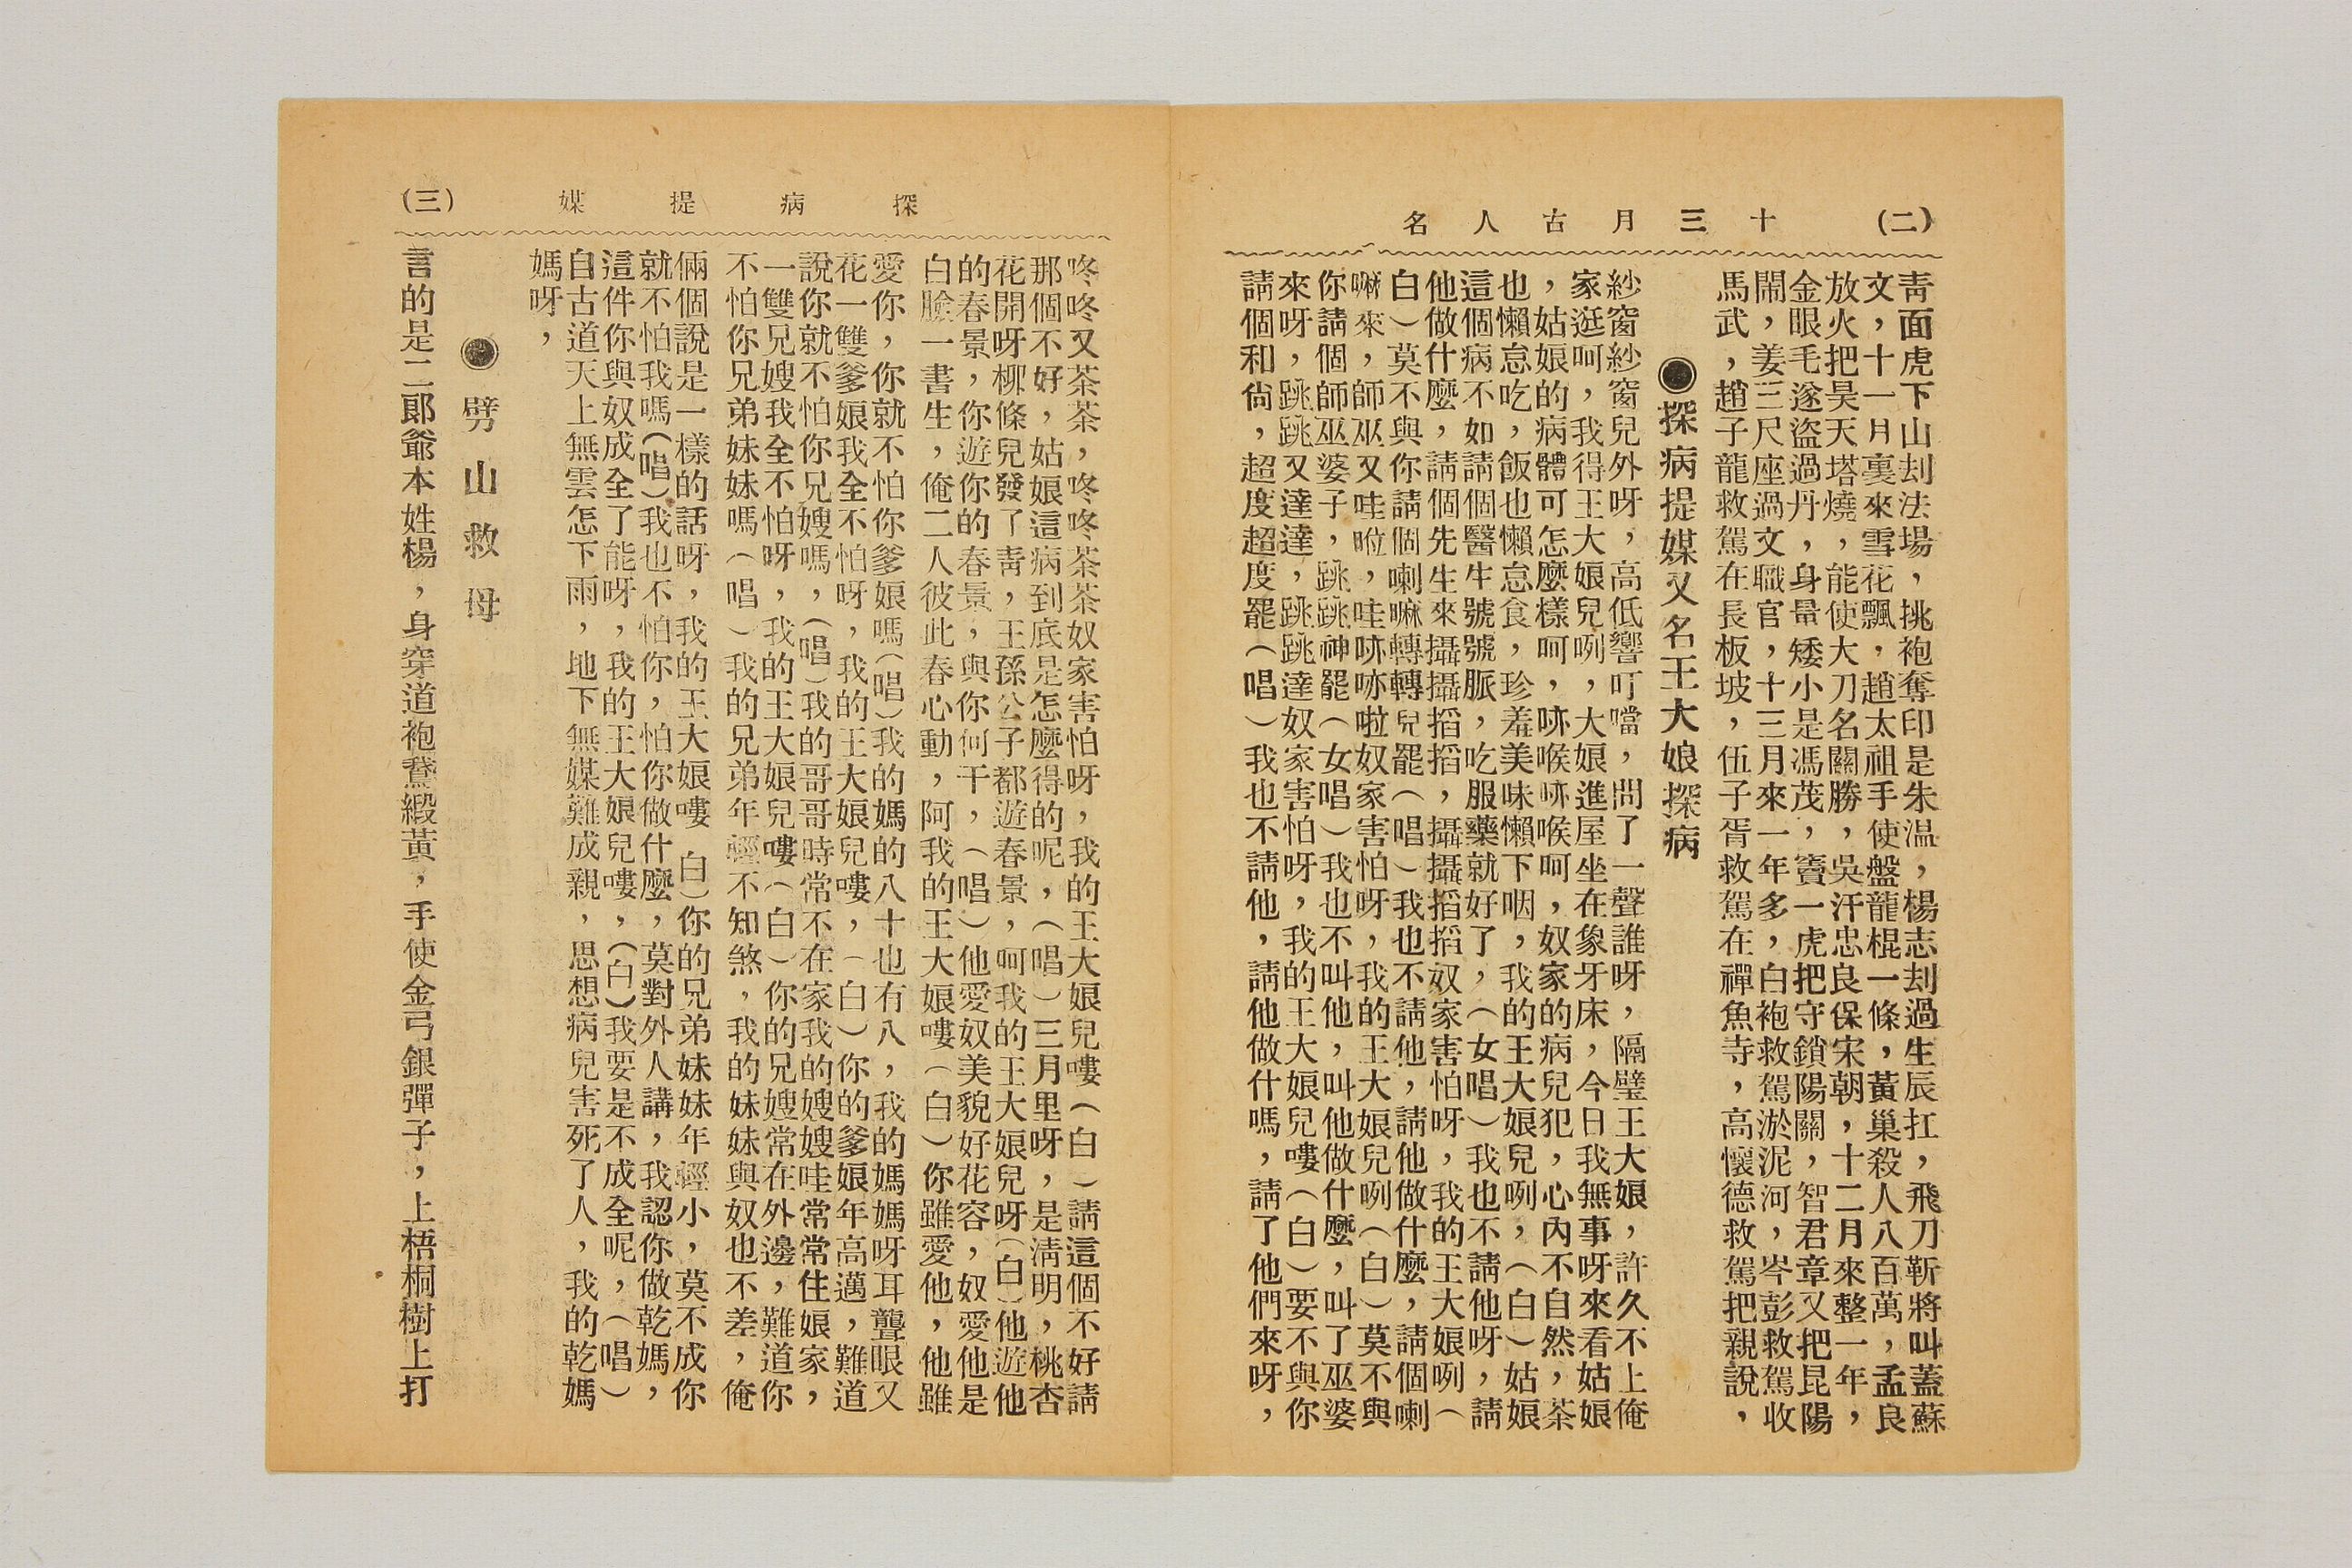 (二) 十三月古人名
靑面虎下山刦法場，挑袍奪印是朱温，楊志刦過生辰扛，飛刀靳將叫蓋蘇
文，十一月裏來雪花飄，趙太祖手使盤龍棍一條，黃巢殺人八百萬，孟良
放火把昊天塔燒，能使大刀名關勝，吳汗忠良保宋朝，十二月來整一年，
金眼毛遂盜過丹，身量矮小是馮茂，竇一虎把守鎖陽關，智君章又把昆陽
鬧，姜三尺座過文職官，十三月來一年多，白袍救駕淤泥河，岑彭救駕收
馬武，趙子龍救駕在長板坡，伍子胥救駕在禪魚寺，高懷德救駕把親說，
◉探病提媒又名王大娘探病
紗窗紗窗兒外呀，高低響叮噹，問了一聲誰呀，隔璧王大娘，許久不上俺
家逛呵，我得王大娘兒咧，大娘進屋坐在象牙床，今日我無事呀來看姑娘
，姑娘的病體可怎麼樣呵，㖀喉㖀喉呵，奴家的病兒犯，心內不自然，茶
也懶怠吃，飯也懶怠食，珍羞美味懶下咽，我的王大娘兒咧，（白）姑娘
這個病不如請個醫生號號脈，吃服藥就好了，（女唱）我也不請他呀，請
他做什麼，請個先生來攝攝搯搯，攝攝搯搯奴家害怕呀，我的王大娘咧（
白）莫不與你請個喇嘛轉轉兒罷（唱）我也不請他，請他做什麼，請個喇
嘛來，師巫又哇啦，哇㖀㖀啦奴家害怕呀，我的王大娘兒咧（白）莫不與
你請個師巫婆子，跳跳神罷（女唱）我也不叫他，叫他做什麼，叫了巫婆
來呀，跳跳又達達，跳跳達奴家害怕呀，我的王大娘兒嘍（白）要不與你
請個和尙，超度超度罷（唱）我也不請他，請他做什嗎，請了他們來呀，
探病提媒 (三)
咚咚又茶茶，咚咚茶茶奴家害怕呀，我的王大娘兒嘍（白）請這個不好請
那個不好，姑娘這病到底是怎麼得的呢，（唱）三月里呀，是淸明，桃杏
花開呀柳條兒發了靑，王孫公子都遊春景，呵我的王大娘兒呀（白）他遊他
的春景，你遊你的春景，與你何干，（唱）他愛奴美貌好花容，奴愛他是
白臉一書生，俺二人彼此春心動，阿我的王大娘嘍（白）你雖愛他，他雖
愛你，你就不怕你爹娘嗎（唱）我的媽的八十也有八，我的媽媽呀耳聾眼又
花一雙爹娘我全不怕呀，我的王大娘兒嘍，（白）你的爹娘年高邁，難道
說你就不怕你兄嫂嗎，（唱）我的哥哥時常不在家我的嫂嫂哇常常住娘家，
一雙兄嫂我全不怕呀，我的王大娘兒嘍（白）你的兄嫂常在外邊，難道你
不怕你兄弟妹妹嗎（唱）我的兄弟年輕不知煞，我的妹妹與奴也不差，俺
倆個說是一樣的話呀，我的王大娘嘍 白）你的兄弟妹妹年輕小，莫不成你
就不怕我嗎（唱）我也不怕你，怕你做什麼，莫對外人講，我認你做乾媽，
這件你與奴成全了能呀，我的王大娘兒嘍，（白）我要是不成全呢，（唱）
自古道天上無雲怎下雨，地下無媒難成親，思想病兒害死了人，我的乾媽
媽呀，
◉劈山救母
言的是二郎爺本姓楊，身穿道袍鵞緞黃，手使金弓銀彈子，上梧桐樹上打